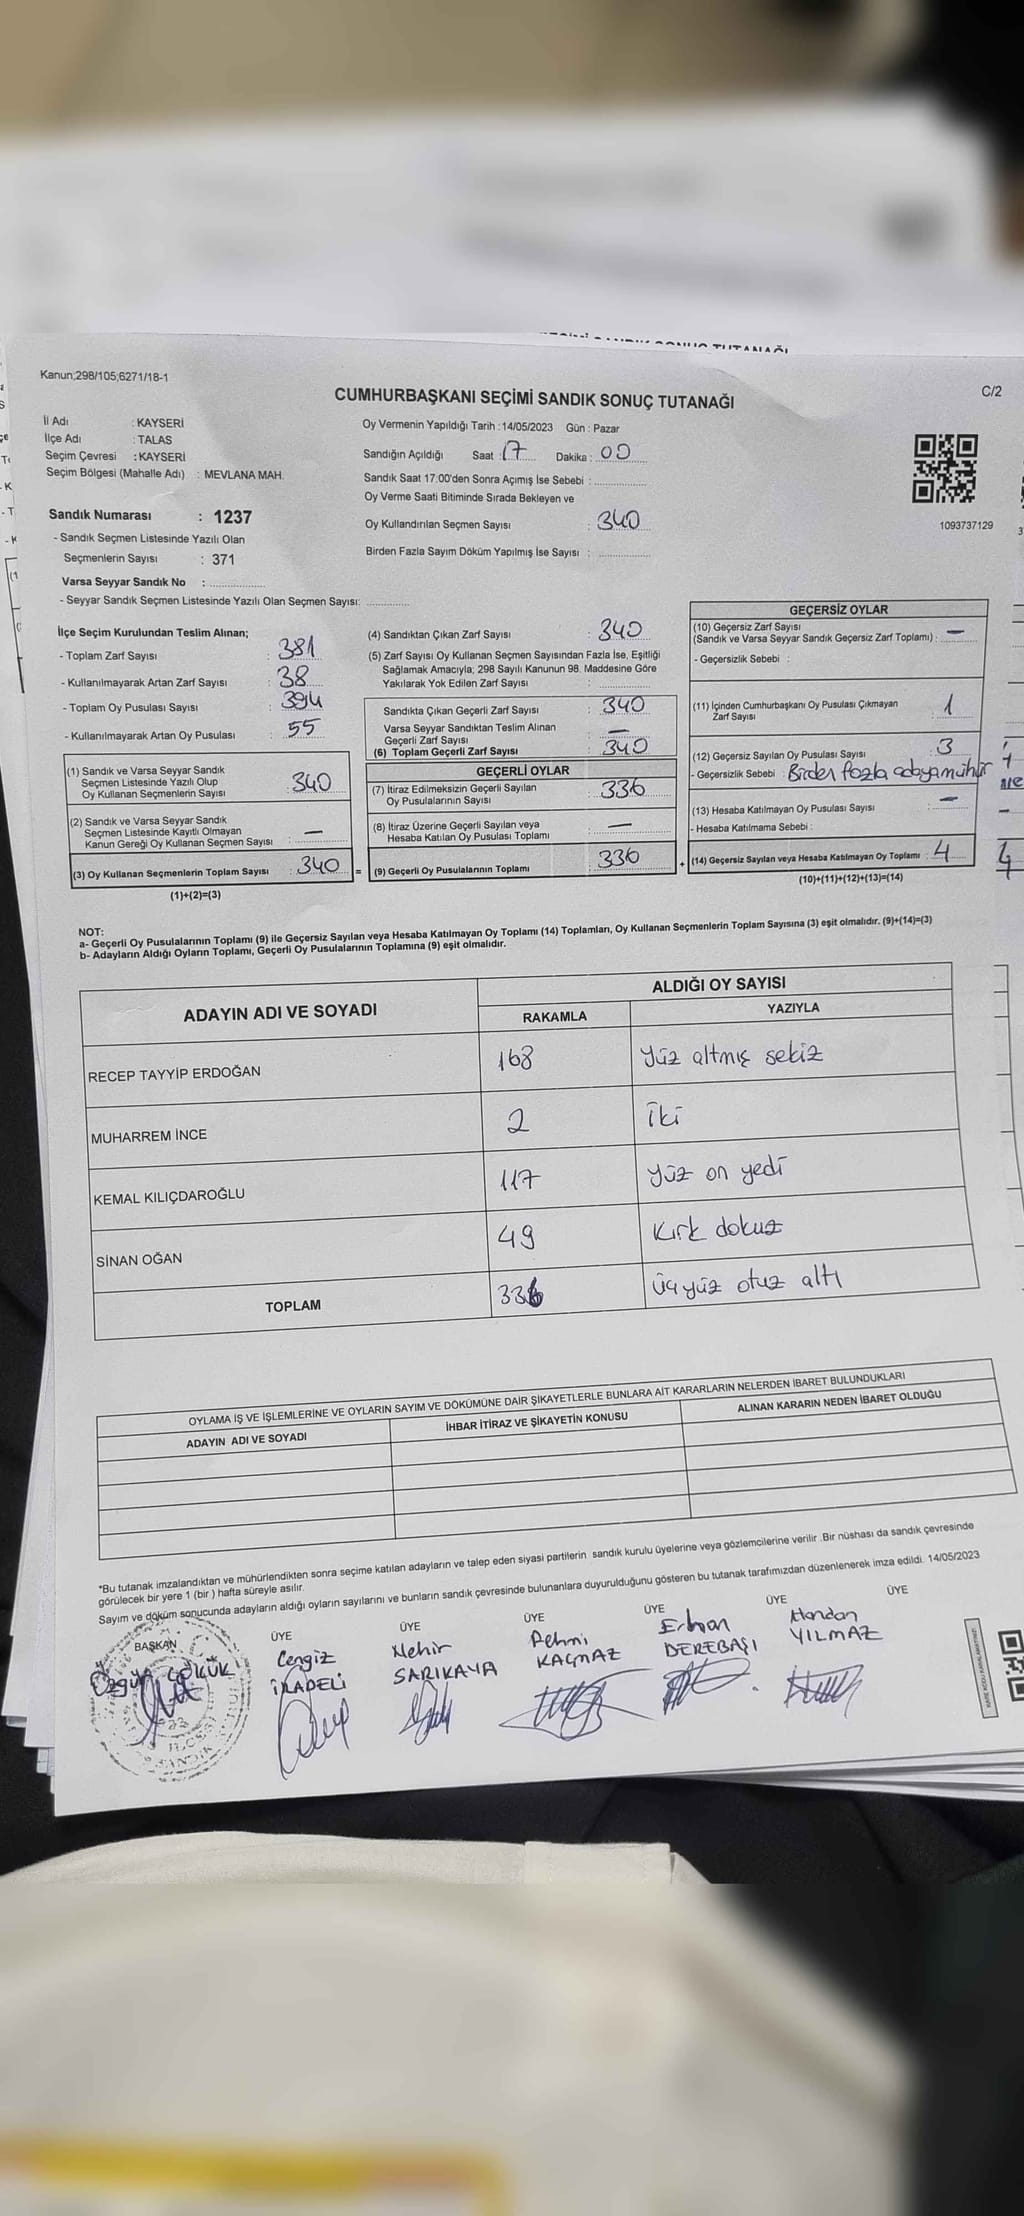 Kanun;298/105;6271/18-1
C/2
CUMHURBAŞKANI SEÇİMİ SANDIK SONUÇ TUTANAĞI
İl Adı : KAYSERİ
İlçe Adı : TALAS
Seçim Çevresi : KAYSERİ
Seçim Bölgesi (Mahalle Adı) : MEVLANA MAH.
Sandık Numarası : 1237
- Sandık Seçmen Listesinde Yazılı Olan
Seçmenlerin Sayısı : 371
Varsa Seyyar Sandık No :
- Seyyar Sandık Seçmen Listesinde Yazılı Olan Seçmen Sayısı:
Oy Vermenin Yapıldığı Tarih : 14/05/2023 Gün : Pazar
Sandığın Açıldığı Saat : 17 Dakika : 00
Sandık Saat 17:00'den Sonra Açımış İse Sebebi :
Oy Verme Saati Bitiminde Sırada Bekleyen ve
Oy Kullandırılan Seçmen Sayısı : 340
Birden Fazla Sayım Döküm Yapılmış İse Sayısı :
1093737129
İlçe Seçim Kurulundan Teslim Alınan;
- Toplam Zarf Sayısı : 381
- Kullanılmayarak Artan Zarf Sayısı : 38
- Toplam Oy Pusulası Sayısı : 394
- Kullanılmayarak Artan Oy Pusulası : 55
(1) Sandık ve Varsa Seyyar Sandık
Seçmen Listesinde Yazılı Olup
Oy Kullanan Seçmenlerin Sayısı : 340
(2) Sandık ve Varsa Seyyar Sandık
Seçmen Listesinde Kayıtlı Olmayan
Kanun Gereği Oy Kullanan Seçmen Sayısı : —
(3) Oy Kullanan Seçmenlerin Toplam Sayısı : 340 =
(1)+(2)=(3)
(4) Sandıktan Çıkan Zarf Sayısı : 340
(5) Zarf Sayısı Oy Kullanan Seçmen Sayısından Fazla İse, Eşitliği
Sağlamak Amacıyla; 298 Sayılı Kanunun 98. Maddesine Göre
Yakılarak Yok Edilen Zarf Sayısı :
Sandıkta Çıkan Geçerli Zarf Sayısı : 340
Varsa Seyyar Sandıktan Teslim Alınan
Geçerli Zarf Sayısı : —
(6) Toplam Geçerli Zarf Sayısı : 340
GEÇERLİ OYLAR
(7) İtiraz Edilmeksizin Geçerli Sayılan
Oy Pusulalarının Sayısı : 336
(8) İtiraz Üzerine Geçerli Sayılan veya
Hesaba Katılan Oy Pusulası Toplamı : —
(9) Geçerli Oy Pusulalarının Toplamı : 336 +
GEÇERSİZ OYLAR
(10) Geçersiz Zarf Sayısı
(Sandık ve Varsa Seyyar Sandık Geçersiz Zarf Toplamı) : —
- Geçersizlik Sebebi :
(11) İçinden Cumhurbaşkanı Oy Pusulası Çıkmayan
Zarf Sayısı : 1
(12) Geçersiz Sayılan Oy Pusulası Sayısı : 3
- Geçersizlik Sebebi : Birden fazla adaya mühür
(13) Hesaba Katılmayan Oy Pusulası Sayısı : —
- Hesaba Katılmama Sebebi :
(14) Geçersiz Sayılan veya Hesaba Katılmayan Oy Toplamı : 4
(10)+(11)+(12)+(13)=(14)
NOT:
a- Geçerli Oy Pusulalarının Toplamı (9) ile Geçersiz Sayılan veya Hesaba Katılmayan Oy Toplamı (14) Toplamları, Oy Kullanan Seçmenlerin Toplam Sayısına (3) eşit olmalıdır. (9)+(14)=(3)
b- Adayların Aldığı Oyların Toplamı, Geçerli Oy Pusulalarının Toplamına (9) eşit olmalıdır.
ADAYIN ADI VE SOYADI ALDIĞI OY SAYISI
RAKAMLA YAZIYLA
RECEP TAYYİP ERDOĞAN 168 Yüz altmış sekiz
MUHARREM İNCE 2 İki
KEMAL KILIÇDAROĞLU 117 Yüz on yedi
SİNAN OĞAN 49 Kırk dokuz
TOPLAM 336 Üçyüz otuz altı
OYLAMA İŞ VE İŞLEMLERİNE VE OYLARIN SAYIM VE DÖKÜMÜNE DAİR ŞİKAYETLERLE BUNLARA AİT KARARLARIN NELERDEN İBARET BULUNDUKLARI
ADAYIN ADI VE SOYADI İHBAR İTİRAZ VE ŞİKAYETİN KONUSU ALINAN KARARIN NEDEN İBARET OLDUĞU
*Bu tutanak imzalandıktan ve mühürlendikten sonra seçime katılan adayların ve talep eden siyasi partilerin sandık kurulu üyelerine veya gözlemcilerine verilir .Bir nüshası da sandık çevresinde
görülecek bir yere 1 (bir ) hafta süreyle asılır.
Sayım ve döküm sonucunda adayların aldığı oyların sayılarını ve bunların sandık çevresinde bulunanlara duyurulduğunu gösteren bu tutanak tarafımızdan düzenlenerek imza edildi. 14/05/2023
BAŞKAN ÜYE ÜYE ÜYE ÜYE ÜYE ÜYE
Cengiz Nehir Fehmi Erhan Handan
SARIKAYA KAÇMAZ DEREBAŞI YILMAZ